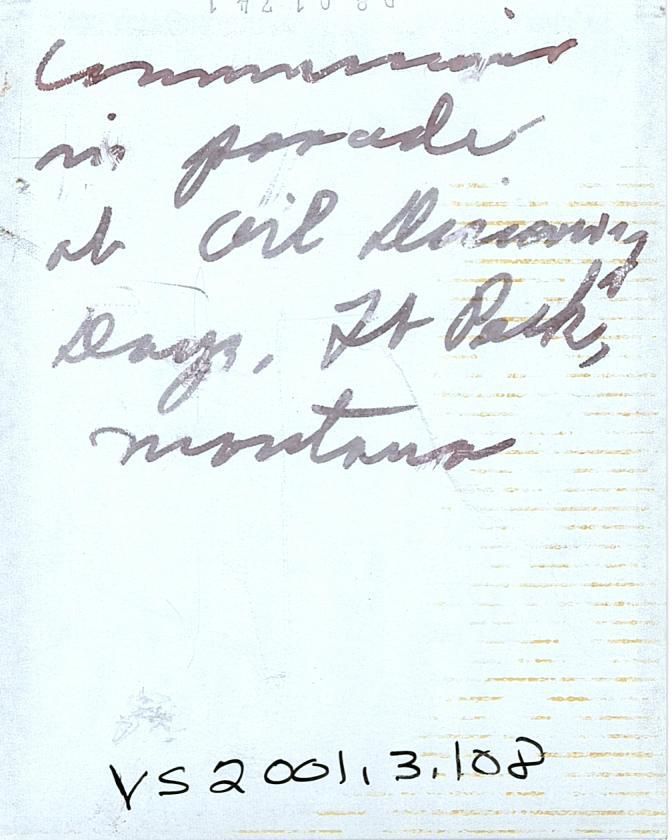 in parade
at Oil Discovery
Days, Ft Peck,
montana
VS2001.3.108